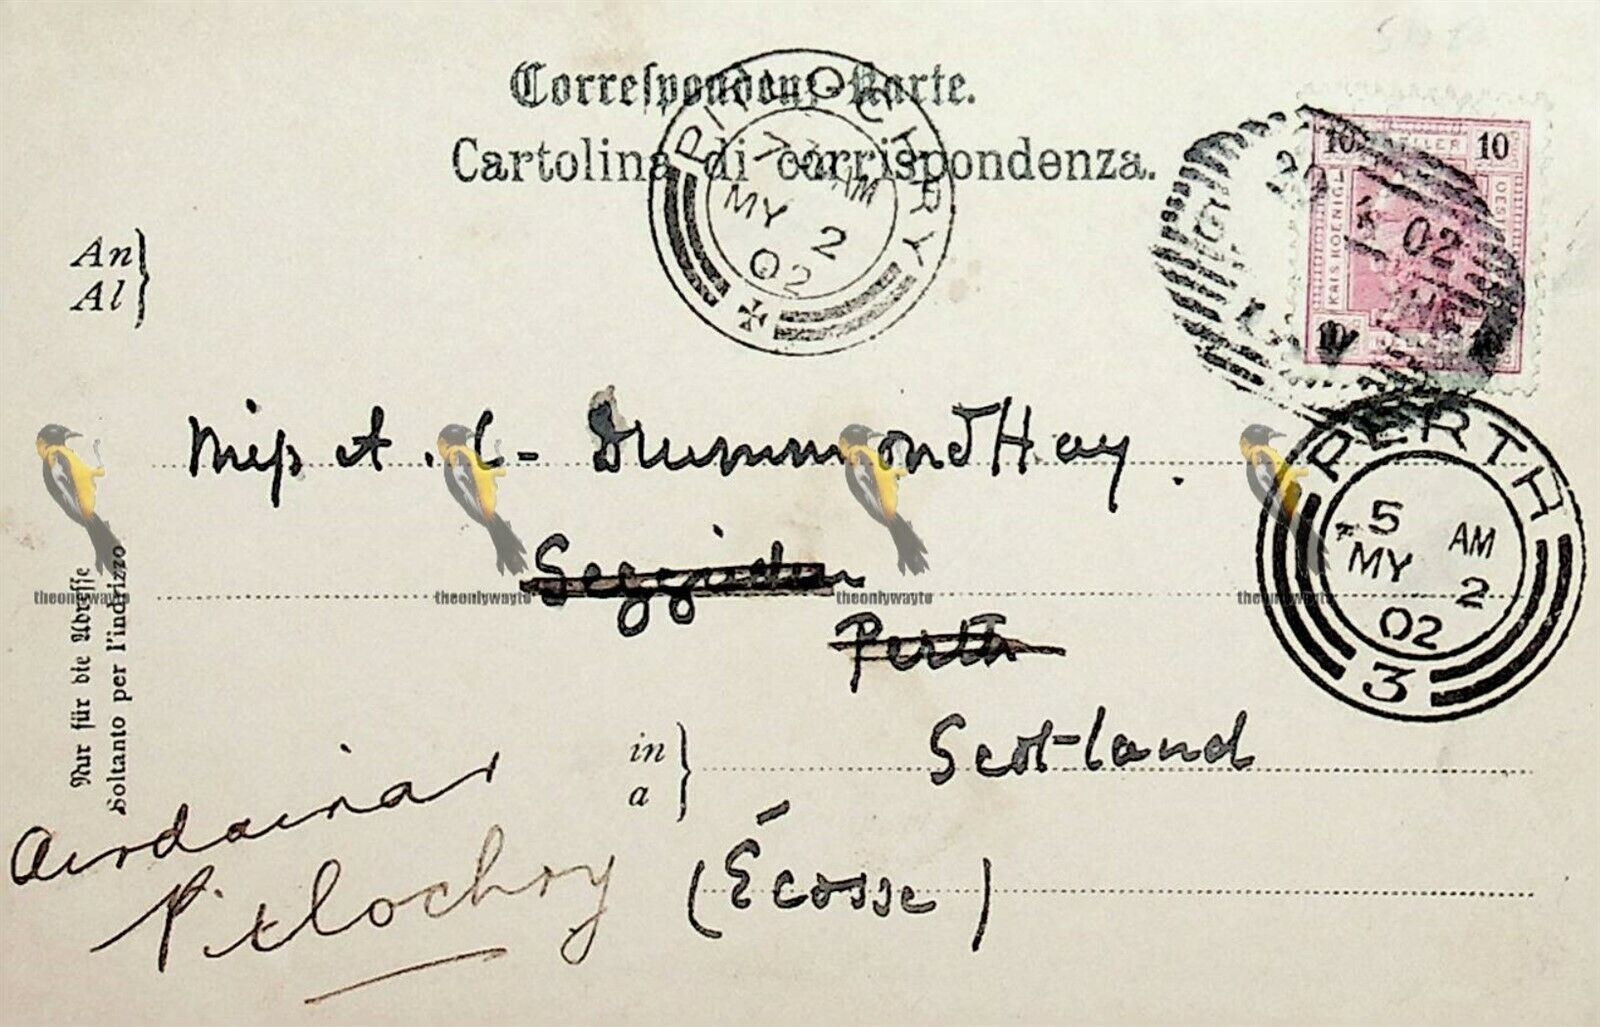 Correspondenz-Karte.
Cartolina di corrispondenza.
PITLOCHRY
7 AM
MY 2
02
10 HELLER 10
KAIS KOENIGL
10
02
PERTH
5 AM
MY 2
02
3
An
Al
Miss A. C. Drummond Hay.
Seggieden
Perth
in
a
Scotland
(Écosse)
Airdaniar
Pitlochry
Nur für die Adresse
Soltanto per l'indrizzo
theonlywayto theonlywayto theonlywayto theonlywayto